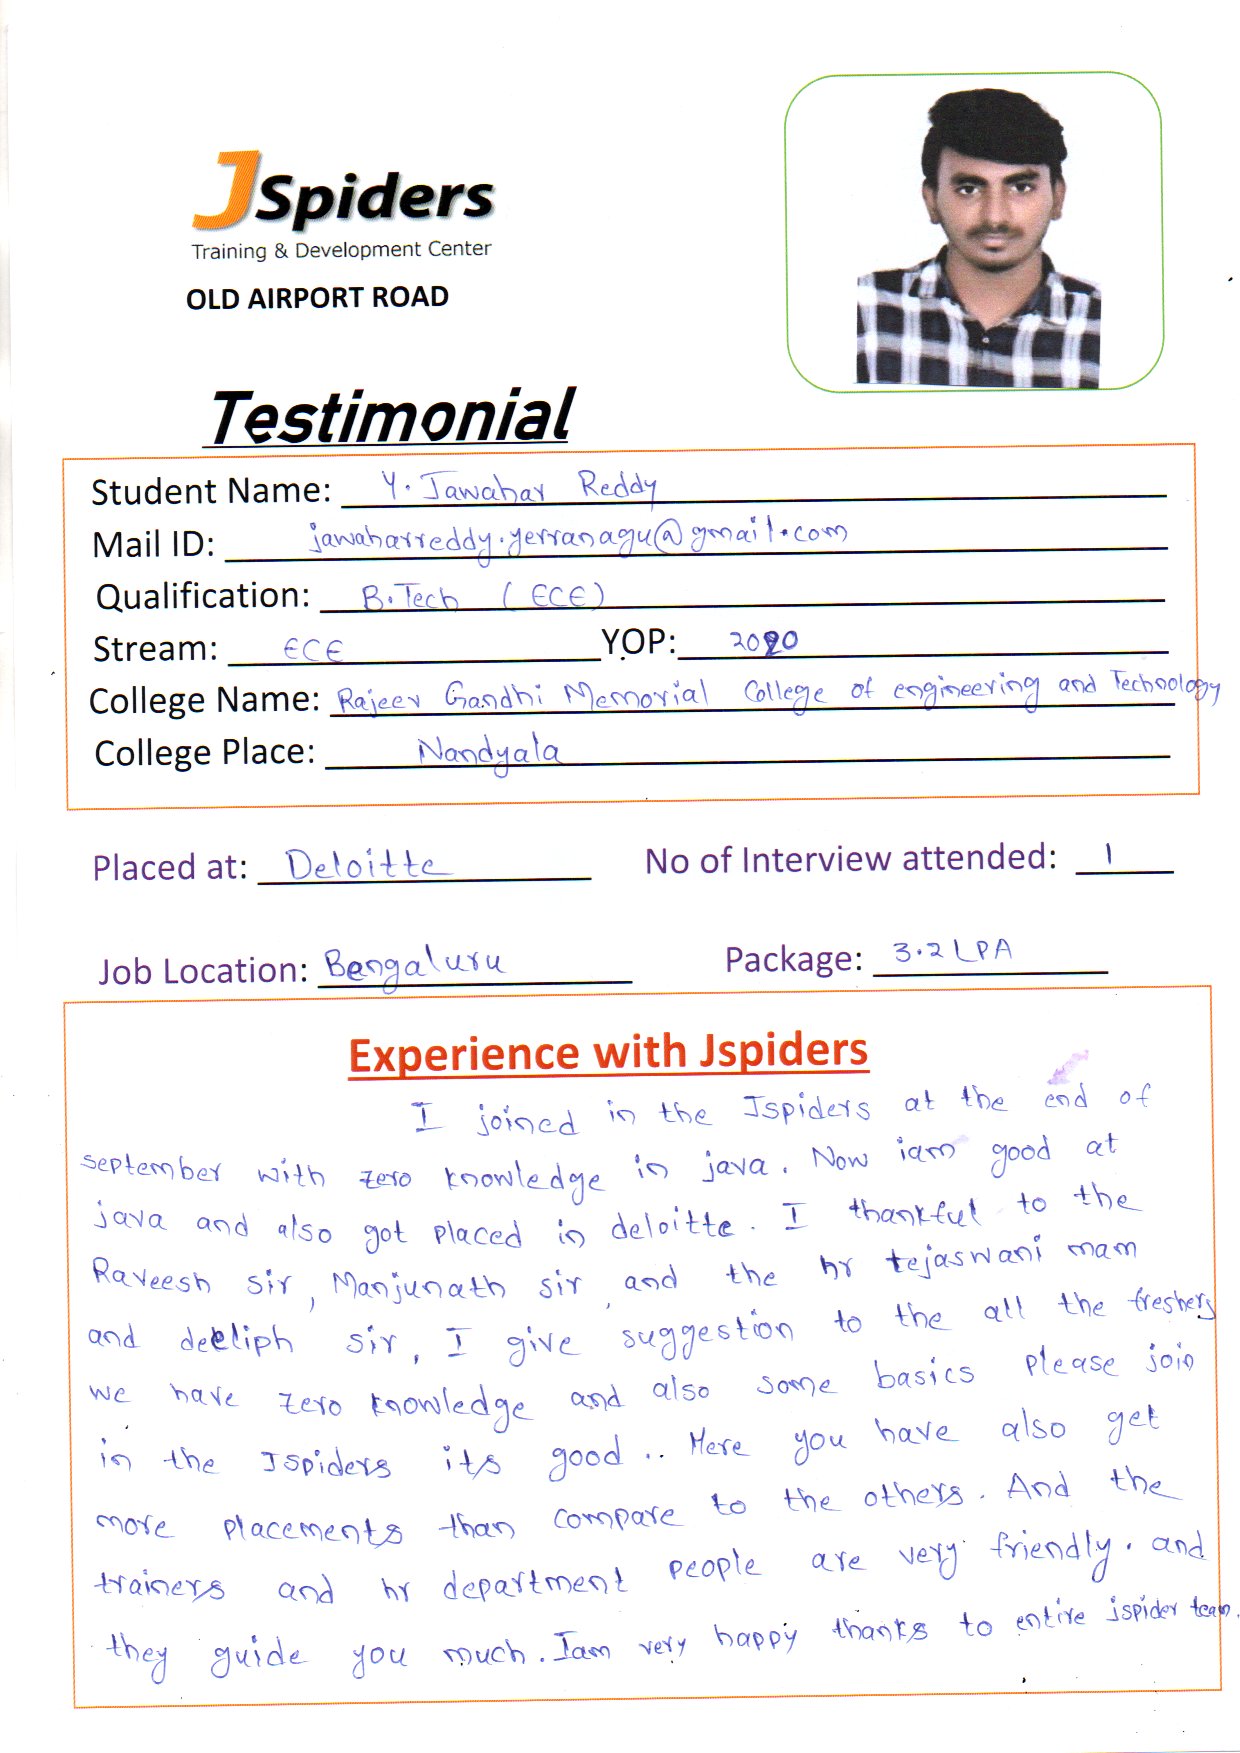 JSpiders
Training & Development Center
OLD AIRPORT ROAD
Testimonial
Student Name: Y. Jawahar Reddy
Mail ID: jawaharreddy.yerranagu@gmail.com
Qualification: B.Tech (ECE)
Stream: ECE YOP: 2020
College Name: Rajeev Gandhi Memorial College of engineering and Technology
College Place: Nandyala
Placed at: Deloitte No of Interview attended: 1
Job Location: Bengaluru Package: 3.2 LPA
Experience with Jspiders
I joined in the Jspiders at the end of
september with zero knowledge in java. Now iam good at
java and also got placed in deloitte. I thankful to the
Raveesh sir, Manjunath sir, and the hr tejaswani mam
and deeliph sir, I give suggestion to the all the freshers
we have zero knowledge and also some basics please join
in the Jspiders its good.. Here you have also get
more placements than compare to the others. And the
trainers and hr department people are very friendly. and
they guide you much. Iam very happy thanks to entire jspider team.